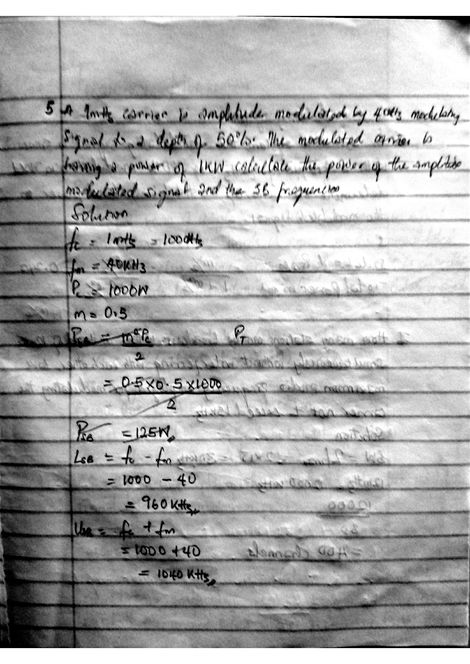 5 A 1mHz carrier is amplitude modulated by 40KHz modulating
signal to a depth of 50%. The modulated carrier is
having a power of 1KW calculate the power of the amplitude
modulated signal and the SB frequencies
Solution
fc = 1mHz = 1000KHz
fm = 40KHz
Pc = 1000W
m = 0.5
PSB = m²Pc PT
2
= 0.5 x 0.5 x 1000
2
PSB = 125W
LSB = fc - fm
= 1000 - 40
= 960KHz
USB = fc + fm
= 1000 + 40
= 1040KHz